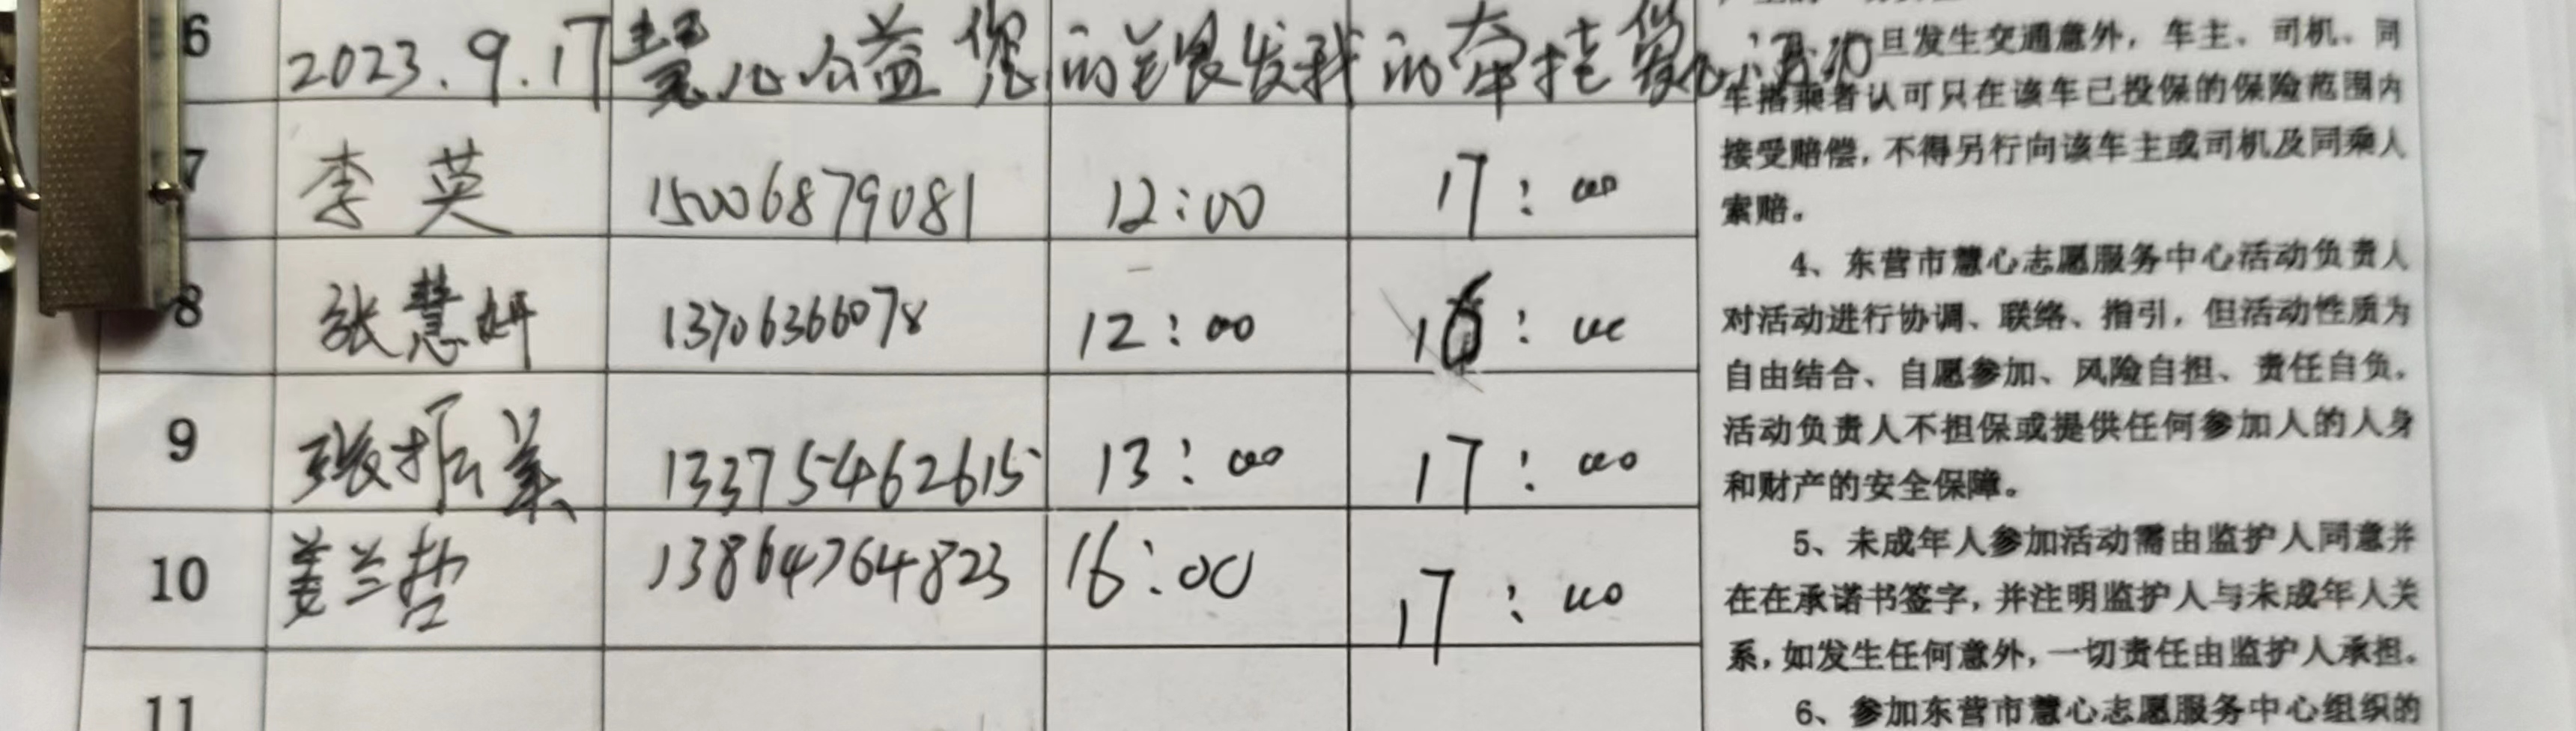 6 2023.9.17慧心公益 您的美银发我的牵挂 活动
7 李英 15006879081 12:00 17:00
8 张慧妍 13706366078 12:00 16:00
9 张振美 13375462615 13:00 17:00
10 姜兰哲 13864764823 16:00 17:00
11
旦发生交通意外，车主、司机、同
车搭乘者认可只在该车已投保的保险范围内
接受赔偿，不得另行向该车主或司机及同乘人
索赔。
4、东营市慧心志愿服务中心活动负责人
对活动进行协调、联络、指引，但活动性质为
自由结合、自愿参加、风险自担、责任自负。
活动负责人不担保或提供任何参加人的人身
和财产的安全保障。
5、未成年人参加活动需由监护人同意并
在在承诺书签字，并注明监护人与未成年人关
系，如发生任何意外，一切责任由监护人承担。
6、参加东营市慧心志愿服务中心组织的